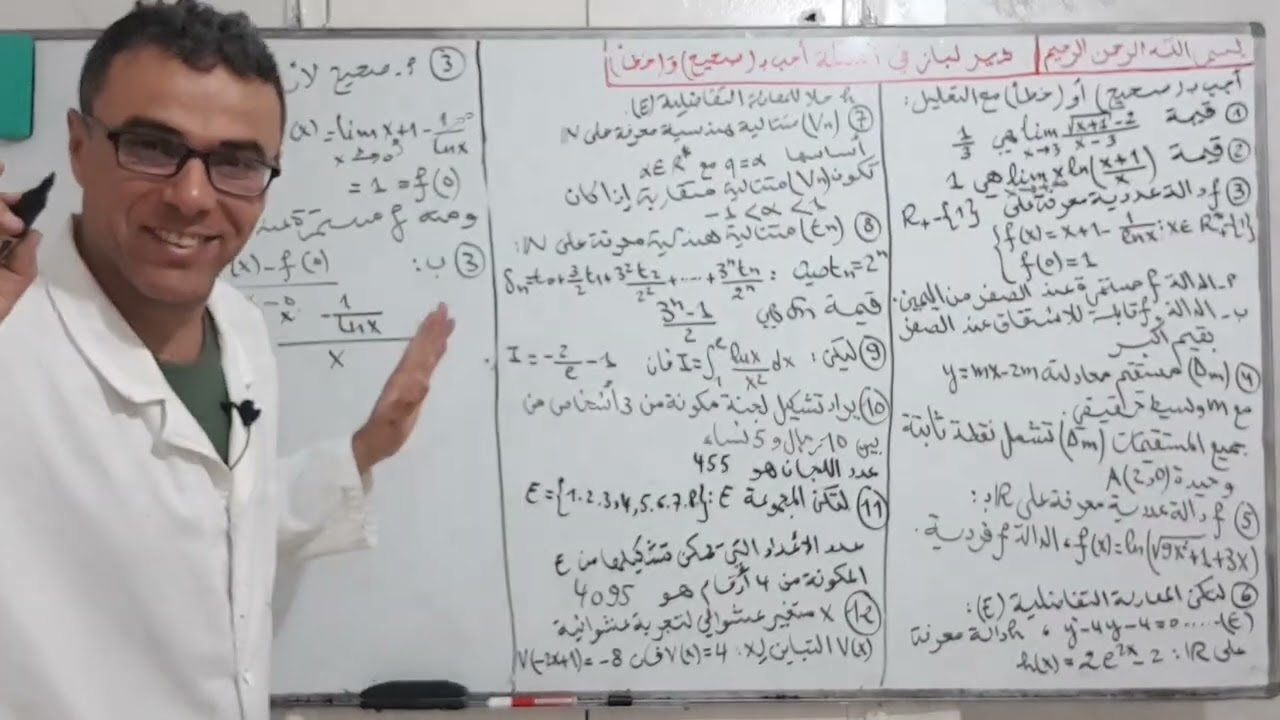 بسم الله الرحمن الرحيم
في أسئلة أجب بـ (صحيح) و (خطأ)
أجب بـ (صحيح) أو (خطأ) مع التعليل:
① قيمة lim x→3 (√(x+1) - 2)/(x-3) هي 1/3
② قيمة lim x ln((x+1)/x) هي 1
③ f دالة عددية معرفة على R₊-{1}
f(x) = x+1 - 1/lnx : x∈R*₊-{1}
f(0) = 1
م- الدالة f مستمرة عند الصفر من اليمين.
ب- الدالة f قابلة للاشتقاق عند الصفر
بقيم أكبر
④ (Δm) مستقيم معادلته y=mx-2m
مع m وسيط حقيقي
جميع المستقيمات (Δm) تشمل نقطة ثابتة
وحيدة A(2,0)
⑤ f دالة عددية معرفة على R بـ:
f(x)=ln(√9x²+1+3x)، الدالة f فردية.
⑥ لتكن المعادلة التفاضلية (E):
y'-4y-4=0.....(E)، h دالة معرفة
على R: h(x)=2e^2x-2
h حلا للمعادلة التفاضلية (E).
⑦ (Vn) متتالية هندسية معرفة على N
أساسها q=α مع α∈R*
تكون (Vn) متتالية متقاربة إذا كان
-1<α<1
⑧ (tn) متتالية هندسية معرفة على N:
Sn=t0+3/2 t1+3²t2/2²+....+3ⁿtn/2ⁿ : حيث tn=2ⁿ
قيمة Sn هي (3ⁿ-1)/2
⑨ ليكن: I=∫₁ᵉ lnx/x² dx فان I=-2/e-1
⑩ يراد تشكيل لجنة مكونة من 3 أشخاص من
بين 10 رجال و 5 نساء
عدد اللجان هو 455
⑪ لتكن المجموعة E : E={1.2.3,4,5.6.7.8}
عدد الأعداد التي يمكن تشكيلها من E
المكونة من 4 أرقام هو 4095
⑫ X متغير عشوائي لتجربة عشوائية
V(x) التباين لـ X: V(x)=4 فان V(-2x+1)=-8
③ م. صحيح لأن
(x)=lim x→0 x+1-1/lnx
=1=f(0)
ومنه f مستمرة عند
③ ب:
(x)-f(0)
x-0
x - 1/lnx
x